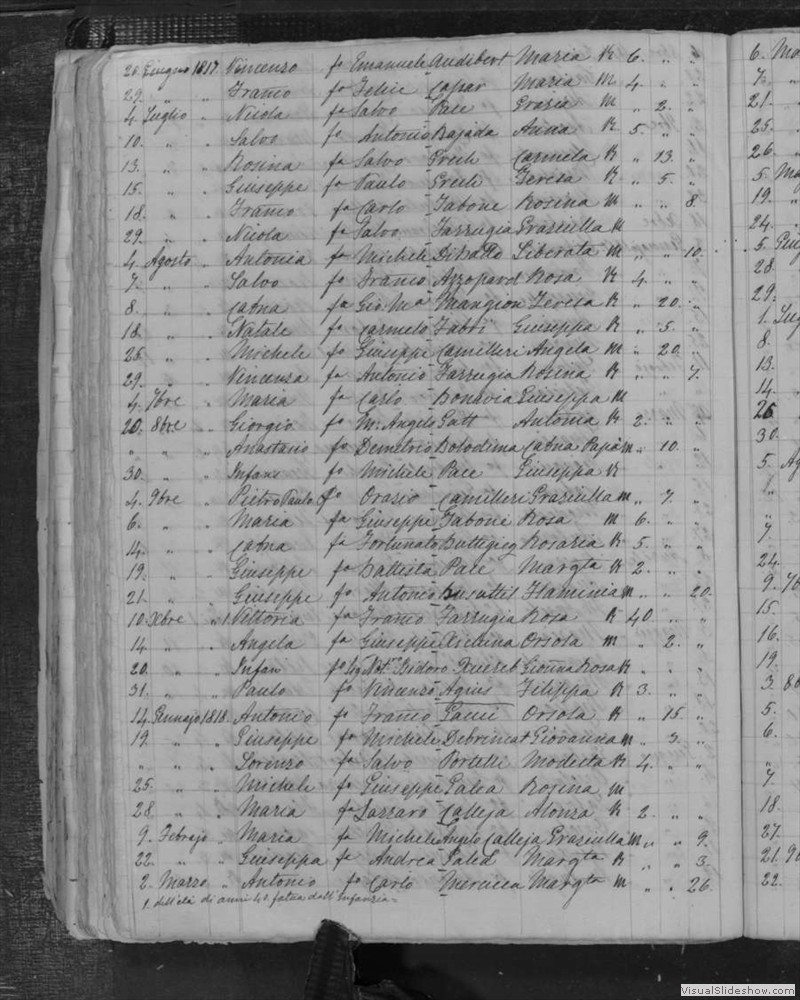 20. Giugno 1817. Vincenzo fo Emanuele Audibert Maria R 6. " "
29. " " Franco fo Felice Capar Maria M 4. " "
4. Luglio " Nicola fo Salvo Pace Grazia M " 2. "
10. " " Salvo fo Antonio Bajada Anna R 5. " "
13. " " Rosina fa Salvo Grech Carmela R " 13. "
15. " " Giuseppe fo Paulo Grech Teresa R " 5. "
18. " " Franco fo Carlo Tabone Rosina M " " 8.
29. " " Nicola fo Salvo Farrugia Graziulla M
4. Agosto " Antonia fa Michele Liberata M " " 10.
7. " " Salvo fo Franco Azzopard Rosa R 4. " "
8. " " Catna fa Gio Ma Mangion Teresa R " 20. "
18. " " Natale fo Carmelo Giuseppa R " 5. "
25. " " Michele fo Giuseppe Camilleri Angela M " 20. "
29. " " Vincenza fa Antonio Farrugia Rosina R " " 7.
4. 7bre " Maria fa Carlo Bonavia Giuseppa M
20. 8bre " Giorgio fo M. Angelo Gatt Antonia R 2. " "
" " " Anastasio fo Demetrio Bolodima Catna Papà M " 10. "
30. " " Infans fo Michele Pace Giuseppa R
4. 9bre " Pietro Paulo fo Orazio Camilleri Graziulla M " 7. "
6. " " Maria fa Giuseppe Tabone Rosa M 6. " "
14. " " Catna fa Fortunato Buttigieg Rosaria R 5. " "
19. " " Giuseppe fo Battista Pace Margta R 2. " "
21. " " Giuseppe fo Antonio Busuttil Flaminia M " " 20.
10. Xbre " 1. Vittoria fa Franco Farrugia Rosa R 40. " "
14. " " Angela fa Giuseppe Orsola M " 2. "
20. " " Infan fo Sig Notro Isidoro Xuereb Gionna Rosa R " " "
31. " " Paulo fo Vincenzo Agius Filippa R 3. " "
14. Gennajo 1818. Antonio fo Franco Orsola R " 15 "
19. " " Giuseppe fo Michele Debrincat Giovanna M " 3. "
" " " Lorenzo fo Salvo Portelli Modesta R 4. "
25. " " Michele fo Giuseppe Galea Rosina M
28. " " Maria fa Lazzaro Calleja Alonza R 2. " "
9. Febrajo " Maria fa Michel Angelo Calleja Graziulla M " " 9.
22. " " Giuseppa fa Andrea Galea Margta R " " 3.
2. Marzo " Antonio fo Carlo Mercieca Margta M " " 26.
1. dell'età di anni 40 fatua dall'Infanzia
6. Mar
7. "
21. "
25.
26.
5. Mag
19. "
24.
5. Giu
28.
29.
1. Lug
8.
13.
14.
26
30.
5. Ag
"
"
7.
24.
9. 7b
15.
16.
19.
3. 8b
5.
6.
"
7.
18.
27.
21. 9b
22.
VisualSlideshow.com